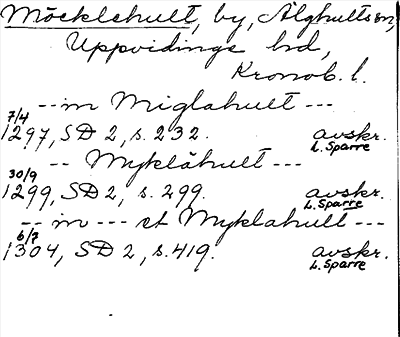 Möcklehult, by, Älghults sn,
Uppvidinge hd,
Kronob. l.
-- in Miglahult ---
7/4
1297, SD 2, s. 232. avskr.
L. Sparre
-- Myklähult ---
30/9
1299, SD 2, s. 299. avskr.
L. Sparre
-- in --- et Myklahult ---
6/7
1304, SD 2, s. 419. avskr.
L. Sparre